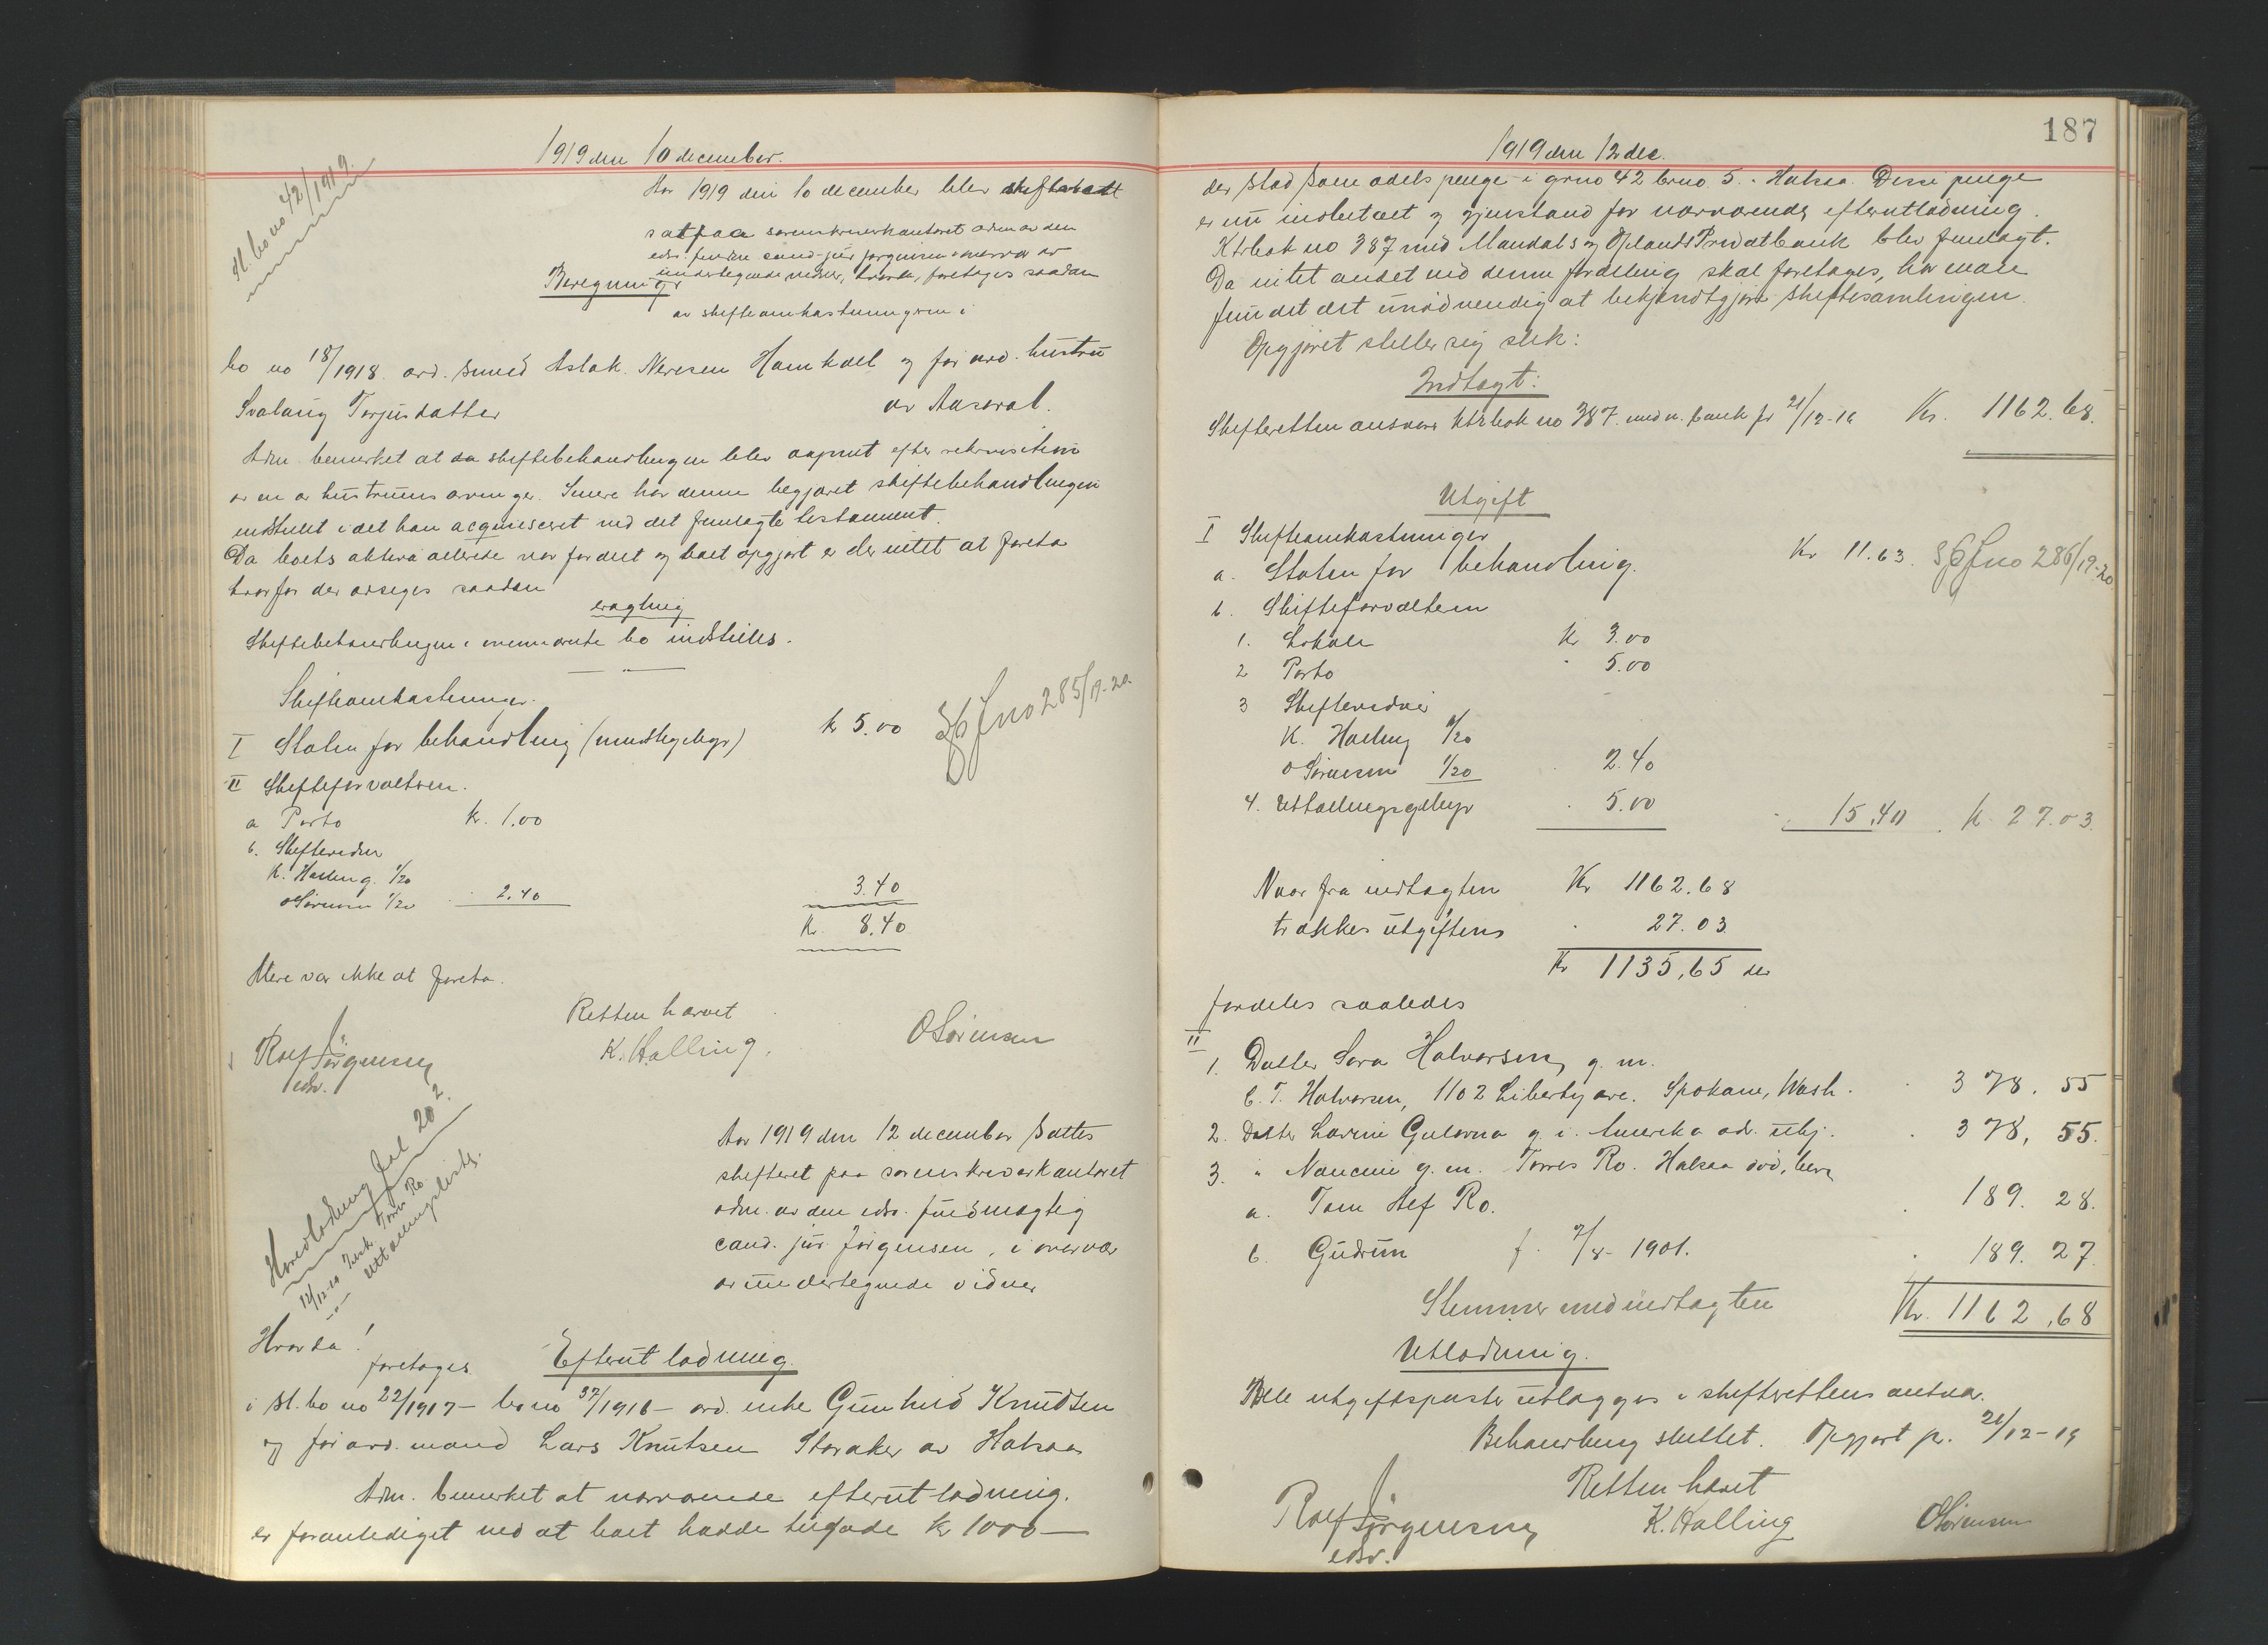 1919 den 10 december.
St. bo no 42/1919.
Aar 1919 den 10 december blev skifterett
sat paa sorenskriverkontoret adm av den
edsv. fuldm cand. jur Jørgensen i overvær av
undertegnede vidner, hvorda, foretages saadan
Beregning
av skifteomkostningene i
bo no 18/1918. avd. smed Aslak Neresen Hamkoll og foravd. hustru
Svalaug Torjusdatter av Aaseral.
Adm. bemerket at da skiftebehandlingen blev aapnet efter rekvisition
av en av hustruens arvinger. Senere har denne begjæret skiftebehandlingen
indstillet idet han acquiesceret ved det fremlagte testament.
Da boets aktiva allerede var fordelt og boet opgjort er der intet at foreta
hvorfor der avsiges saadan
eragtning
Skiftebehandlingen i ovennævnte bo indstilles.
Skifteomkostninger.
I Staten for behandling (mindstegebyr) kr 5.00 Sp Jno 285/19-20
II Skifteforvalteren.
a Porto kr. 1.00
b. Skiftevidner
K. Halling. 1/20
O Sørensen 1/20 2.40 3.40
Kr. 8.40
Mere var ikke at foreta.
Retten hævet
Rolf Jørgensen K. Halling. O Sørensen
edsv.
Hovedlodning fol 202.
12/12-19 Tores Ro
utlodningslister.
Aar 1919 den 12 december sattes
skifteret paa sorenskriverkontoret
adm. av den edsv. fuldmægtig
cand. jur. Jørgensen, i overvær
av undertegnede vidner
Hvorda!
foretages Efterutlodning.
i st. bo no 22/1917 - bo no 37/1916 - avd. enke Gunhild Knudsen
og foravd. mand Lars Knutsen Storaker av Halsaa
Adm. bemerket at nærværende efterutlodning.
er foranlediget ved at boet hadde tilgode kr 1000 -
187
1919 den 12 dec.
der stod som odelspenge i grno 42 brno 5. i Halsaa. Disse penge
er nu indbetalt og gjenstand for nærværende efterutlodning.
Ktrbok no 387 med Mandals og Oplands Privatbank blev fremlagt.
Da intet andet end denne fordeling skal foretages, har man
fundet det unødvendig at bekjendtgjøre skiftesamlingen.
Opgjøret stiller sig slik:
Indtægt:
Skifteretten ansvar ktrbok no 387 med n. bank pr 21/12-19 Kr. 1162.68.
Utgift
I Skifteomkostninger
a. Staten for behandling. Kr 11.63. Sp Jno 286/19-20
b. Skifteforvalteren
1. Lokale kr 3.00
2 Porto " 5.00
3 Skiftevidner
K. Halling 1/20
O Sørensen 1/20 2.40
4. Utlodningsgebyr " 5.00 15.40 kr. 27.03.
Naar fra indtægten Kr 1162.68
trækkes utgiftens " 27.03
Kr 1135,65 der
fordeles saaledes
II
1. Datter Sara Halvorsen g. m.
C. T. Halvorsen, 1102 Liberty ave. Spokane, Wash. 378. 55
2. Datter Lovise Gulovna g. i. Amerika adr. ubkj. 378, 55.
3. " Nancine g. m. Tores Ro. Halsaa død, børn
a. Tom Alf Ro. 189. 28.
b. Gudrun f. 7/8 - 1901. 189. 27.
Stemmer med indtægten Kr. 1162,68
Utlodning.
Alle utgiftsposter utlægges i skifterettens ansvar.
Behandling sluttet. Opgjort pr. 21/12-19
Retten hævet
Rolf Jørgensen K. Halling O Sørensen
edsv.